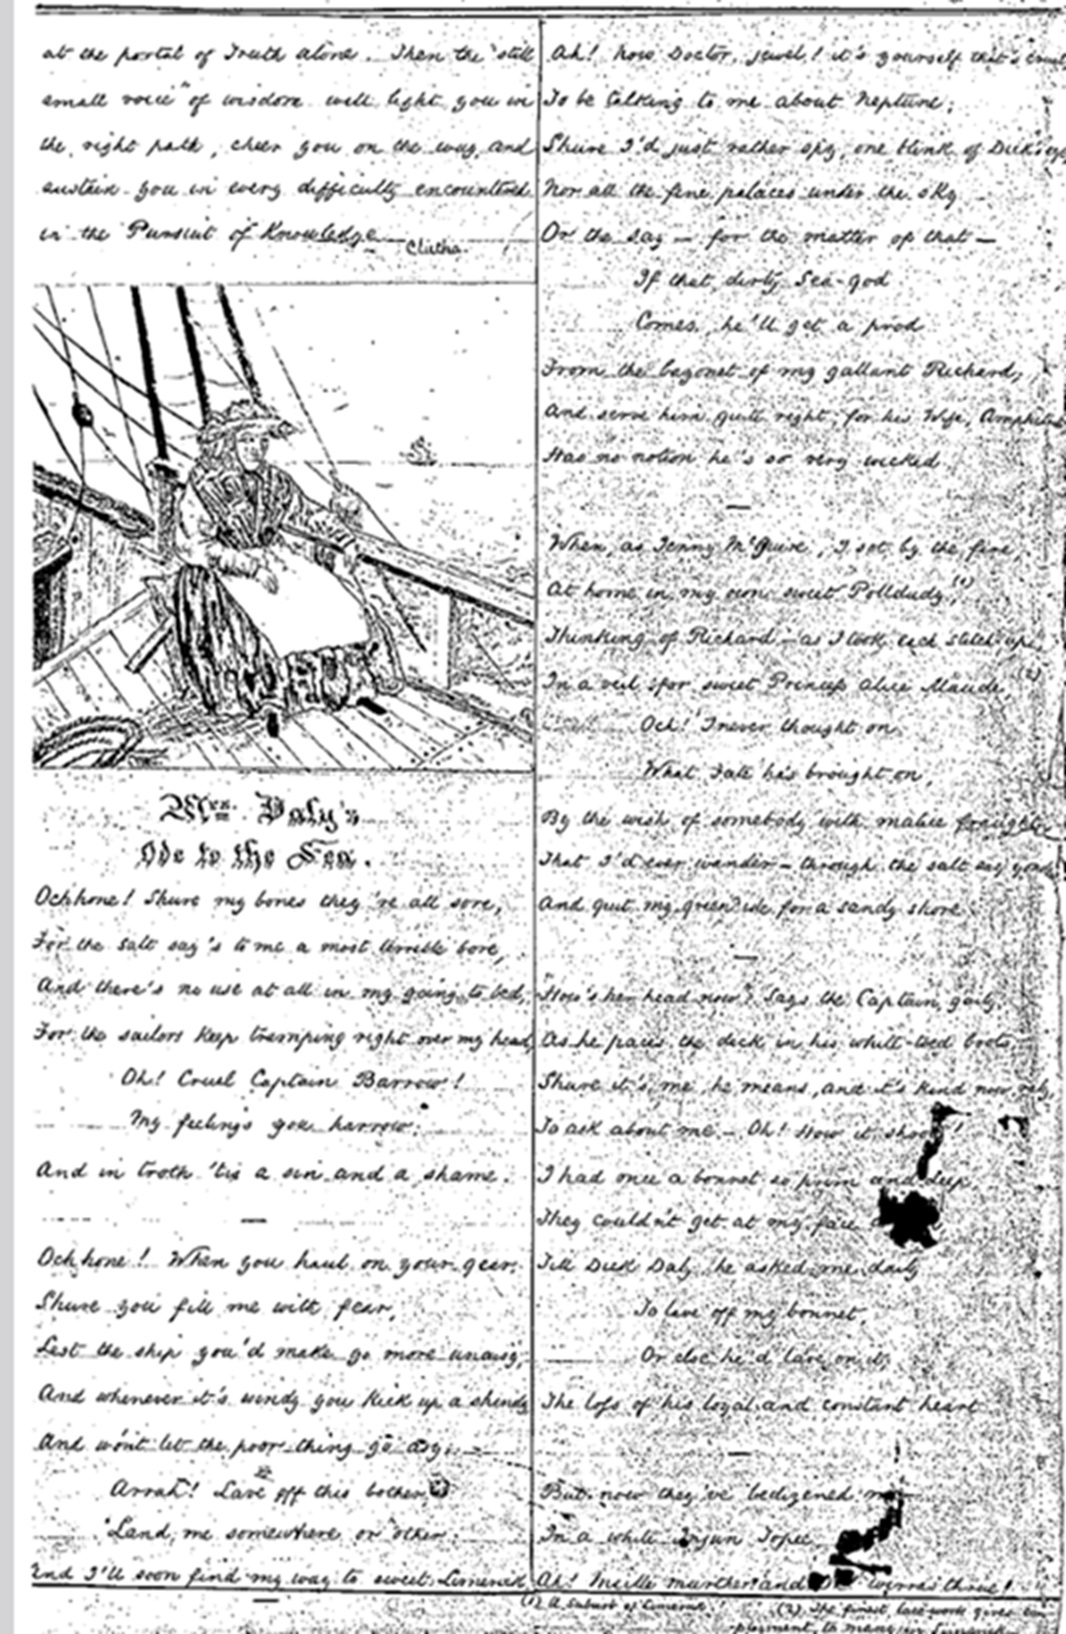 at the portal of Truth alone. Then the "still
small voice" of wisdom will light you in
the right path, cheer you on the way, and
sustain you in every difficulty encountered
in the Pursuit of Knowledge
Clutha.
Mrs. Daly's
Ode to the Sea.
Ochhone! Shure my bones they're all sore,
For the salt say's to me a most terrible bore,
And there's no use at all in my going to bed,
For the sailors keep tramping right over my head,
Oh! Cruel Captain Barrow!
My feelings you harrow.
And in troth 'tis a sin and a shame.
Ochhone! When you haul on your gear,
Shure you fill me with fear,
Lest the ship you'd make go more unaisy,
And whenever it's windy you kick up a shindy
And won't let the poor thing go aisy.
Arrah! Lave off this bother
Land me somewhere or other.
And I'll soon find my way to sweet Limerick
Ah! now Doctor, jewel! it's yourself that's cruel
To be talking to me about Neptune;
Shure I'd just rather spy, one blink of Dick's eye
Nor all the fine palaces under the sky
Or the say — for the matter of that —
If that dirty Sea-god
Comes, he'll get a prod
From the bagonet of my gallant Richard,
And serve him quite right, for his Wife,
Has no notion he's so very wicked
When, as Jenny McGuire, I sot by the fire,
At home in my own sweet Polldudy, (1)
Thinking of Richard — as I took each stitch up
In a veil for sweet Princess Alice Maude, (2)
Och! I never thought on
What Fate has brought on,
By the wish of somebody with malice fraught
That I'd ever wander — through the salt say
And quit my green isle for a sandy shore
"How's her head now"? Says the Captain, gaily,
As he paces the deck in his white-toed boots,
Shure it's me he means, and it's kind now
To ask about me — Oh! How it
I had once a bonnet so prim and deep,
They couldn't get at my face
Till Dick Daly he asked me daily
To lave off my bonnet,
Or else he'd lave on it,
The loss of his loyal and constant heart
But now they've bedizened me
In a white Injun Topee
Ah! Meille murther! and wirrasthrue!
(1) A Suburb of Limerick.
(2) The finest lace work gives em-
ployment to many in Limerick